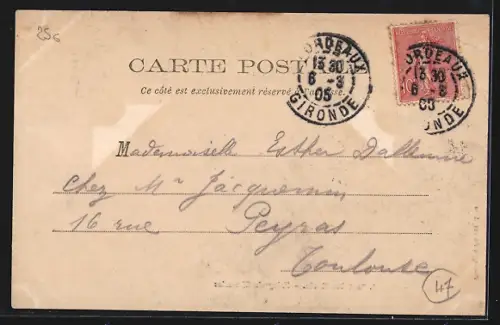 25G
CARTE POSTALE
Ce côté est exclusivement réservé à l'adresse.
BORDEAUX
13 30
6 - 3
05
GIRONDE
BORDEAUX
13 30
6 - 3
05
GIRONDE
Mademoiselle Esther Dallenne
Chez Mr Jacquemin
16 rue Peyras
Toulouse
47